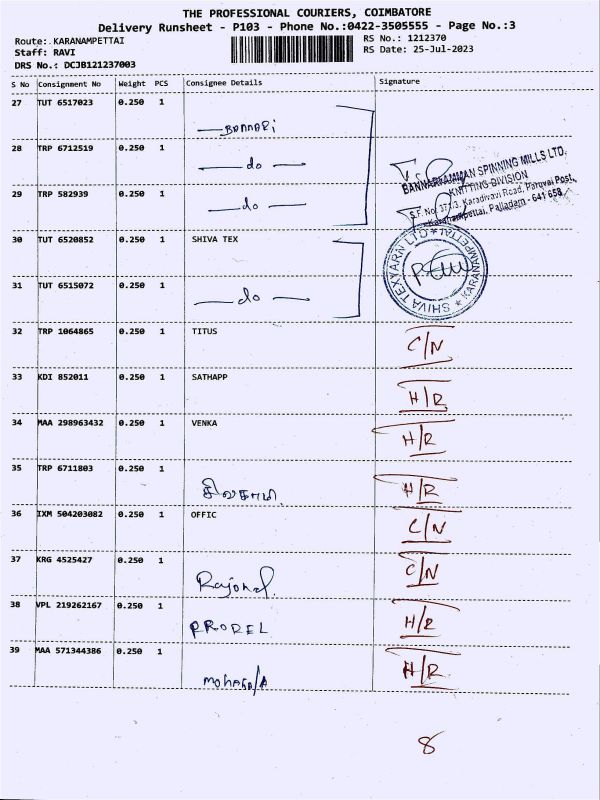 THE PROFESSIONAL COURIERS, COIMBATORE
Delivery Runsheet - P103 - Phone No.:0422-3505555 - Page No.:3
Route: KARANAMPETTAI
RS No.: 1212370
Staff: RAVI
RS Date: 25-Jul-2023
DRS No.: DCJB121237003
S No Consignment No Weight PCS Consignee Details Signature
27 TUT 6517023 0.250 1
BANNARI
28 TRP 6712519 0.250 1
do
29 TRP 582939 0.250 1
do
BANNARIAMMAN SPINNING MILLS LTD.
KNITTING DIVISION
S.F. No. 37/1/3, Karadivavi Road, Paruvai Post,
Karanampettai, Palladam - 641 658.
30 TUT 6520852 0.250 1 SHIVA TEX
SHIVA TEXYARN LTD * KARANAMPETTAI *
31 TUT 6515072 0.250 1
do
32 TRP 1064865 0.250 1 TITUS
C/N
33 KDI 852011 0.250 1 SATHAPP
H/R
34 MAA 298963432 0.250 1 VENKA
H/R
35 TRP 6711803 0.250 1
H/R
36 IXM 504203082 0.250 1 OFFIC
C/N
37 KRG 4525427 0.250 1
C/N
38 VPL 219262167 0.250 1
PRODEL H/R
39 MAA 571344386 0.250 1
H/R
8